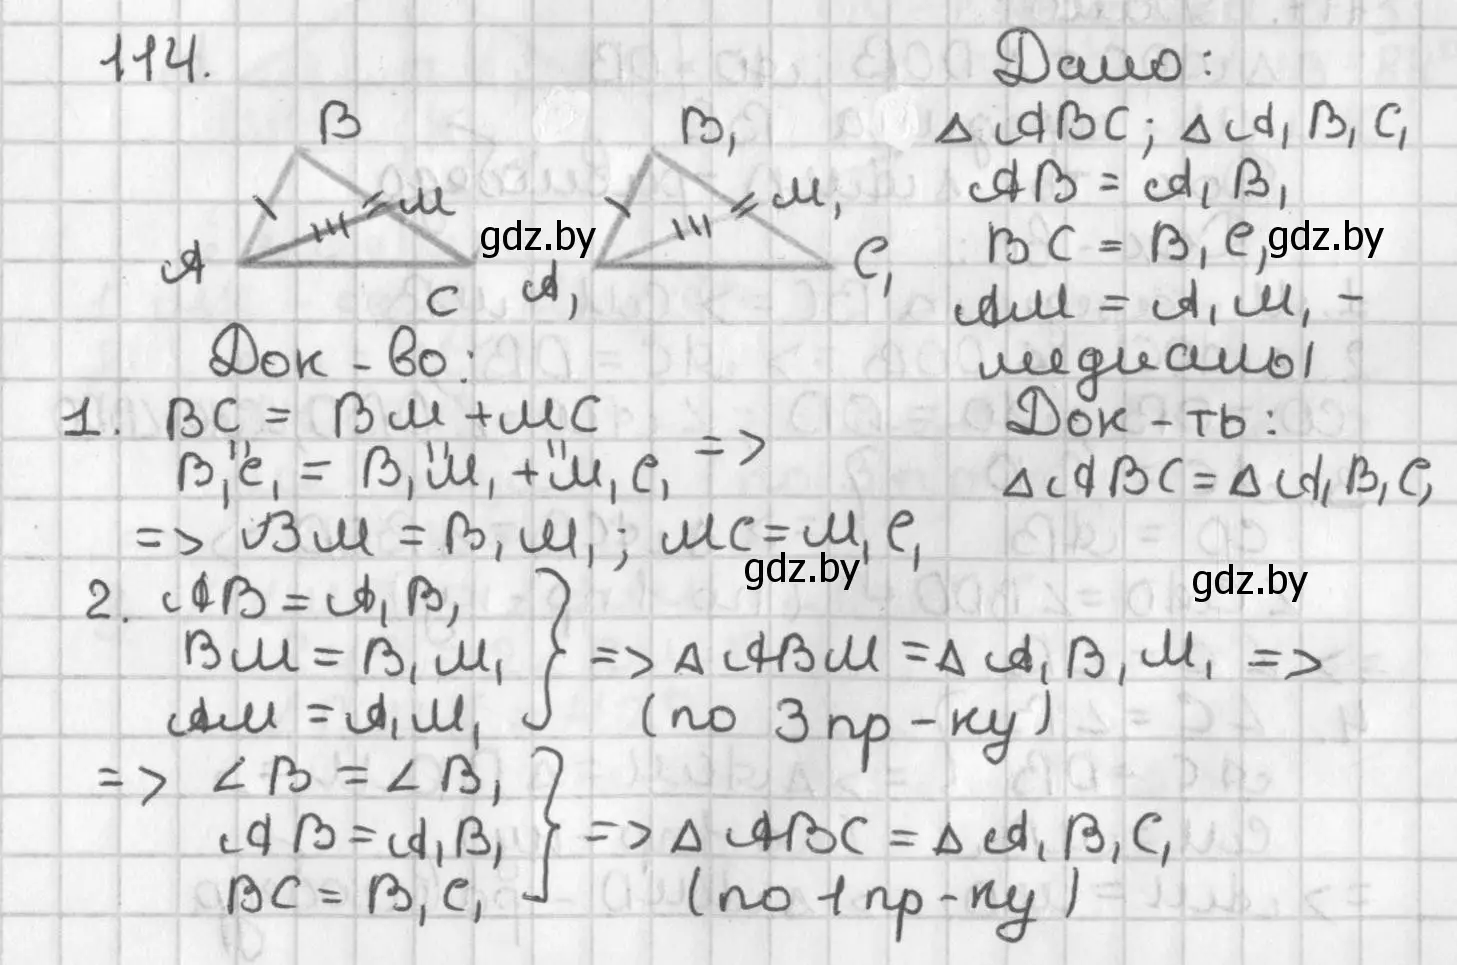 114.
B
M
A
C
B₁
M₁
A₁
C₁
gdz.by
Дано:
△ ABC; △ A₁B₁C₁
AB = A₁B₁
BC = B₁C₁
gdz.by
AM = A₁M₁ -
медианы
Док-ть:
△ ABC = △ A₁B₁C₁
Док-во:
1. BC = BM + MC
" " "
B₁C₁ = B₁M₁ + M₁C₁ =>
=> BM = B₁M₁; MC = M₁C₁
gdz.by
gdz.by
2. AB = A₁B₁
BM = B₁M₁ } => △ ABM = △ A₁B₁M₁ =>
AM = A₁M₁ (по 3 пр-ку)
=> ∠B = ∠B₁
AB = A₁B₁ } => △ ABC = △ A₁B₁C₁
BC = B₁C₁ (по 1 пр-ку)